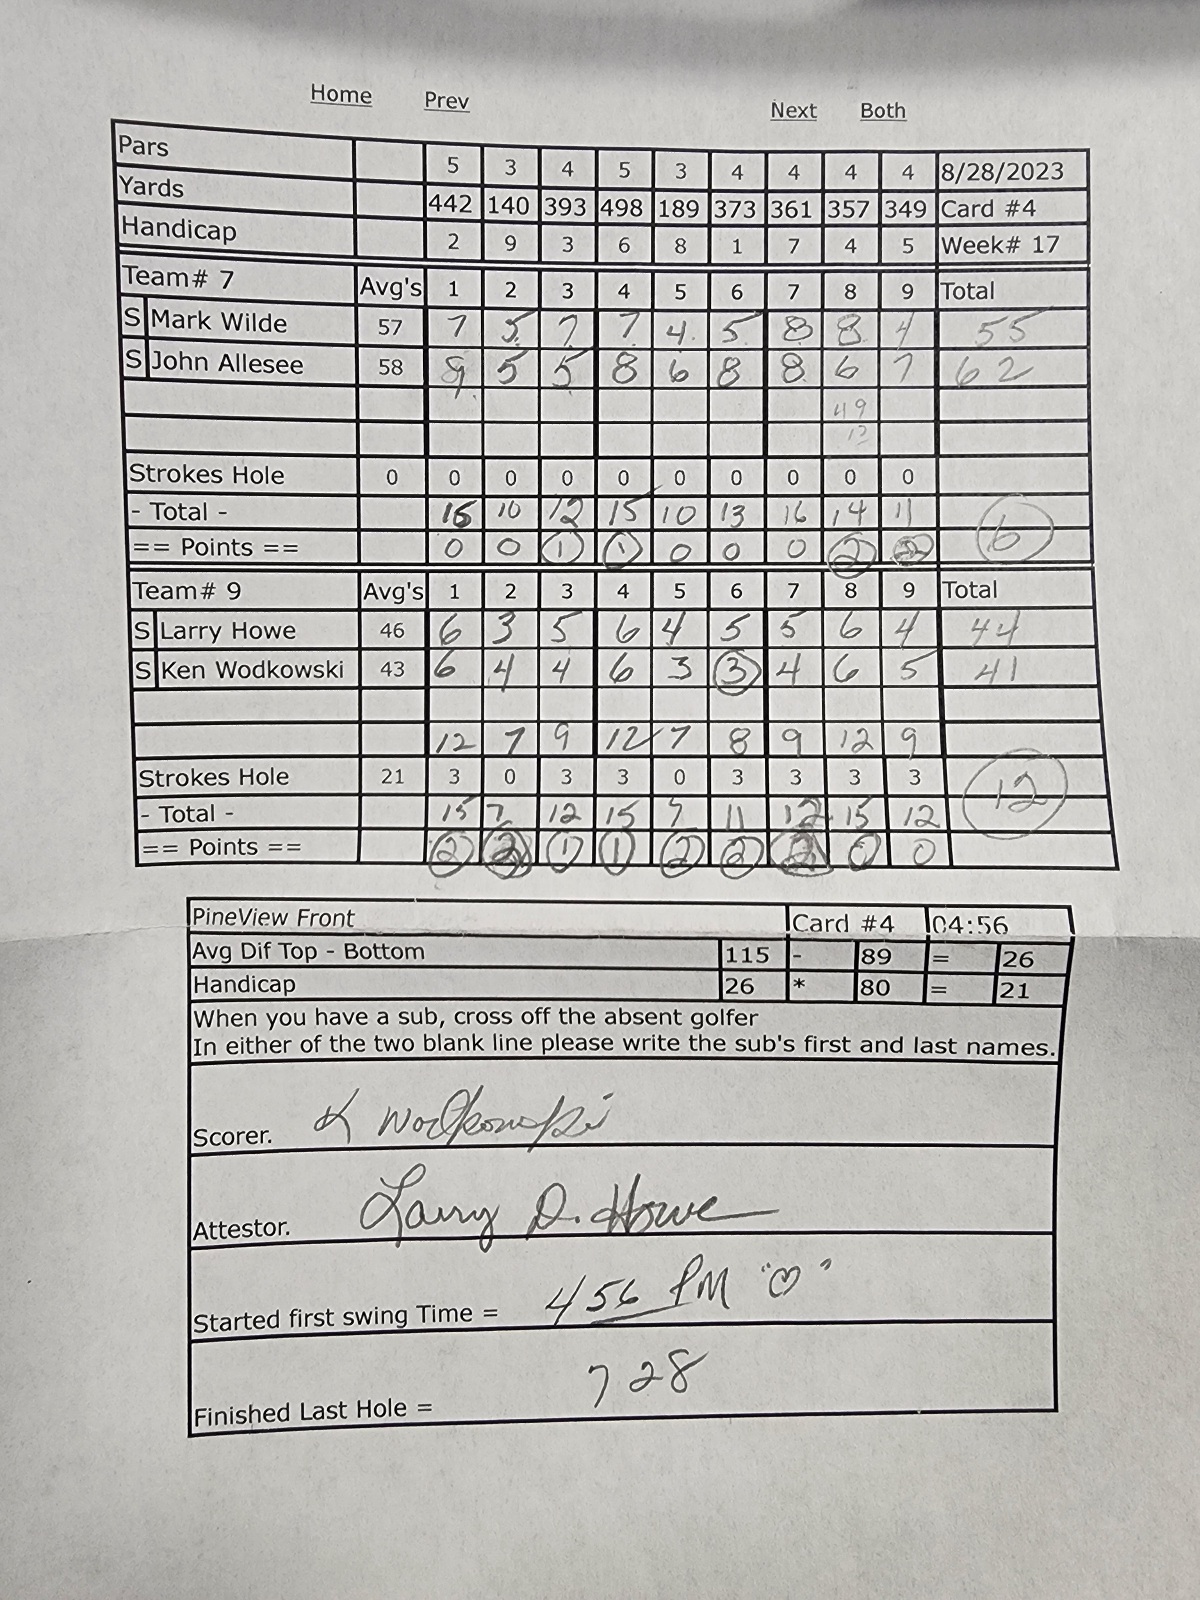 Home Prev Next Both
Pars 5 3 4 5 3 4 4 4 4 8/28/2023
Yards 442 140 393 498 189 373 361 357 349 Card #4
Handicap 2 9 3 6 8 1 7 4 5 Week# 17
Team# 7 Avg's 1 2 3 4 5 6 7 8 9 Total
S Mark Wilde 57 7 5 7 7 4 5 8 8 4 55
S John Allesee 58 9 5 5 8 6 8 8 6 7 62
49
13
Strokes Hole 0 0 0 0 0 0 0 0 0 0
- Total - 16 10 12 15 10 13 16 14 11
== Points == 0 0 1 1 0 0 0 2 2 6
Team# 9 Avg's 1 2 3 4 5 6 7 8 9 Total
S Larry Howe 46 6 3 5 6 4 5 5 6 4 44
S Ken Wodkowski 43 6 4 4 6 3 3 4 6 5 41
12 7 9 12 7 8 9 12 9
Strokes Hole 21 3 0 3 3 0 3 3 3 3 12
- Total - 15 7 12 15 7 11 12 15 12
== Points == 2 2 1 1 2 2 2 0 0
PineView Front Card #4 04:56
Avg Dif Top - Bottom 115 - 89 = 26
Handicap 26 * 80 = 21
When you have a sub, cross off the absent golfer
In either of the two blank line please write the sub's first and last names.
Scorer. K Wodkowski
Attestor. Larry D. Howe
Started first swing Time = 4 56 PM "♡"
Finished Last Hole = 7 28